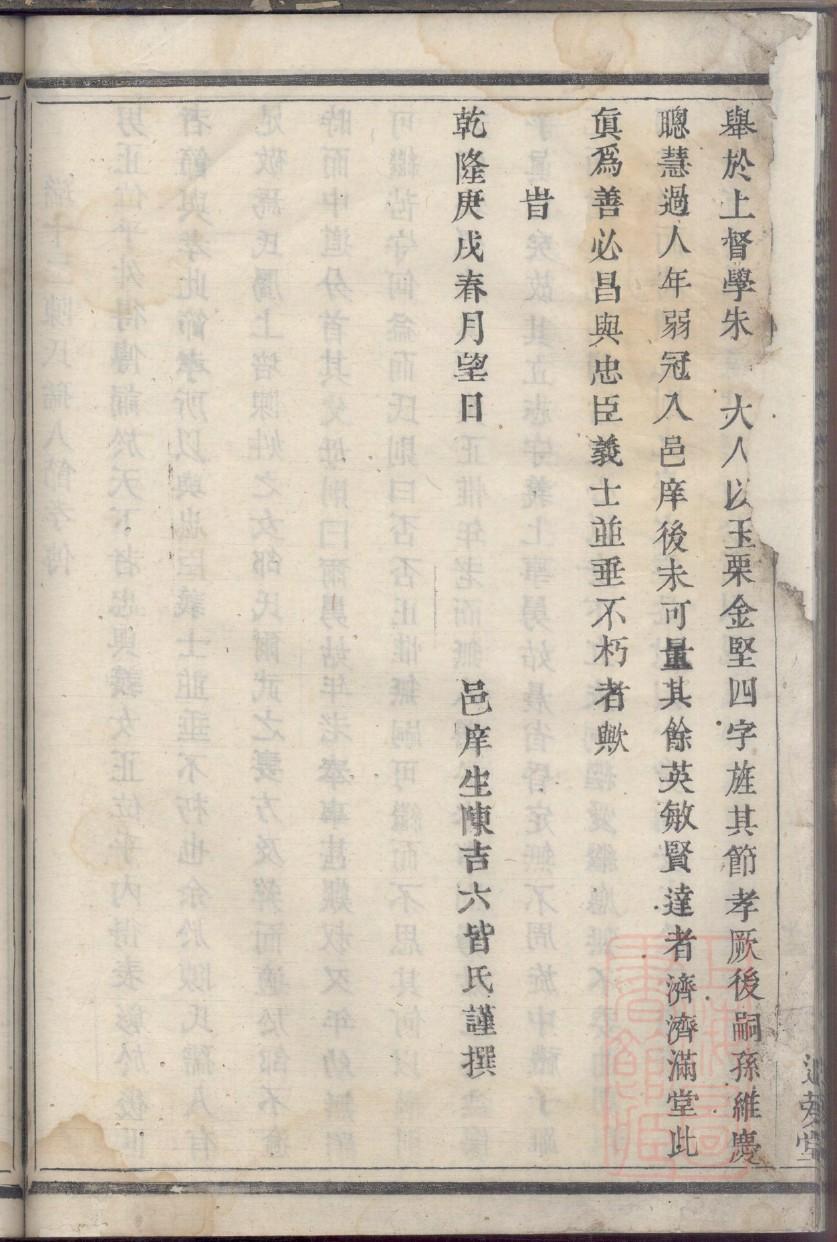 舉於上督學朱　大人以玉栗金堅四字旌其節孝厥後嗣孫維慶
聰慧過人年弱冠入邑庠後未可量其餘英敏賢達者濟濟滿堂此
眞爲善必昌與忠臣義士並垂不朽者歟
旹
乾隆庚戌春月望日　邑庠生陳吉六皆氏謹撰
堂